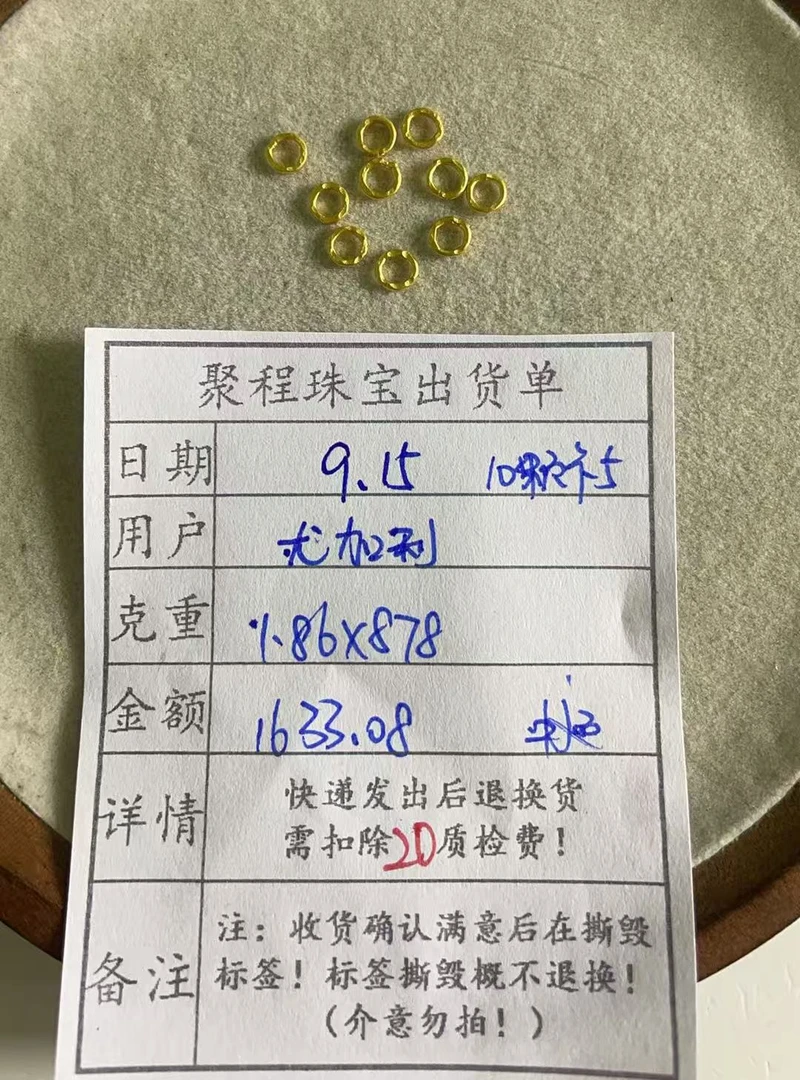 聚程珠宝出货单
日期 9.15 10颗
用户 尤加利
克重 1.86X878
金额 1633.08
详情 快递发出后退换货
需扣除20质检费！
备注 注：收货确认满意后在撕毁
标签！标签撕毁概不退换！
（介意勿拍！）